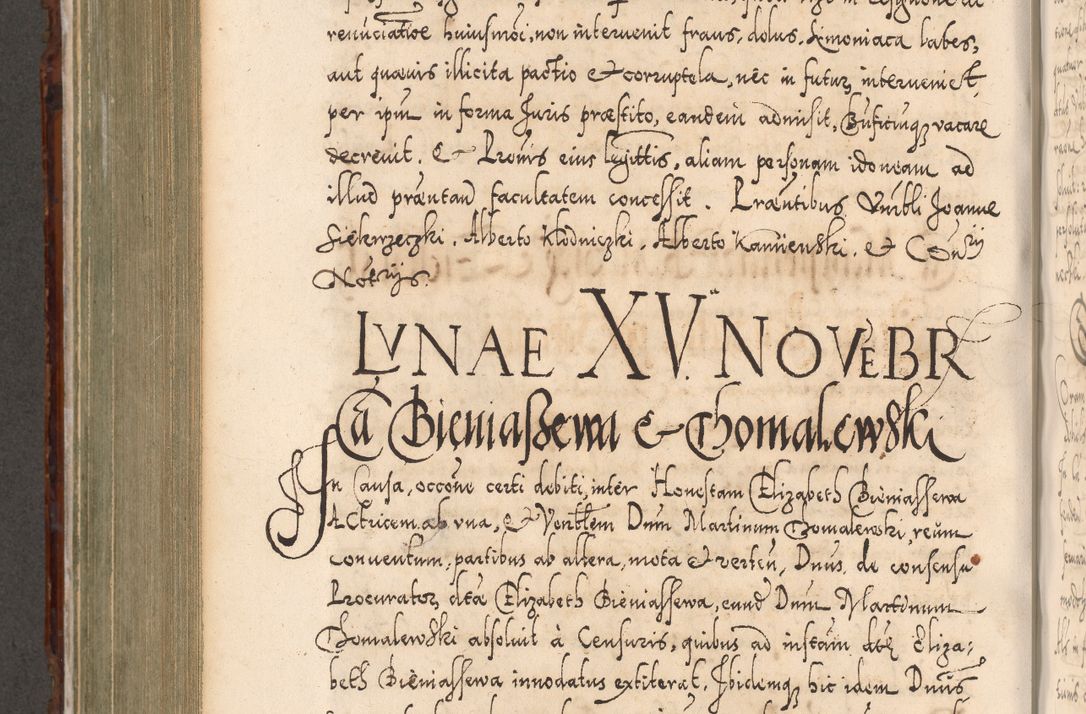 renūciatiōe huiusmōi, non interuenit fraus, dolus, Simoniaca labes,
aut quæuis illicita pactio et corruptela, nec in futurꝫ interueniet,
per ipm̄ in forma Juris præstito, eandem admisit, Bn̄ficiumqꝫ vacare
decreuit. Et Prouis eius legittis, aliam personam idoneam ad
illud præn̄tandi facultatem concessit. Præn̄tibus Vn̄rbli Joanne
Siekierzeczki, Alberto Kłodniczki, Alberto Kamieński, et Con̄rijs
Notrijs.
LVNAE XV. NOVĒBR
Cā Bieniaßewa et Thomalewski
In Causa, occōne certi debiti, inter Honestam Elizabeth Bieniassewa
Actricem ab vna, et Ven̄tlem Dnūm Martinum Thomalewski, reūm
conuentum, partibus ab altera, mota et verteñ, Dnūs, de consensu
Procuratorꝫ dtā Elizabeth Bieniassewa, eund Dnūm Martinum
Thomalewski absoluit à Censuris, quibus ad instām dtē Eliza-
beth Bieniassewa innodatus extiterat. Ibidemqꝫ hic idem Dnūs,